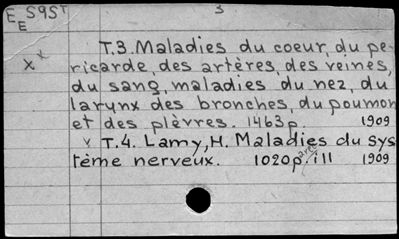 EE S9ST 3
T.3. Maladies du coeur, du pe-
x ricarde, des artères, des veines,
du sang, maladies du nez, du
larynx des bronches, du poumon
et des plèvres. 1463p. 1909
v T.4. Lamy, H. Maladies du sys
tème nerveux. 1020p. ill 1909